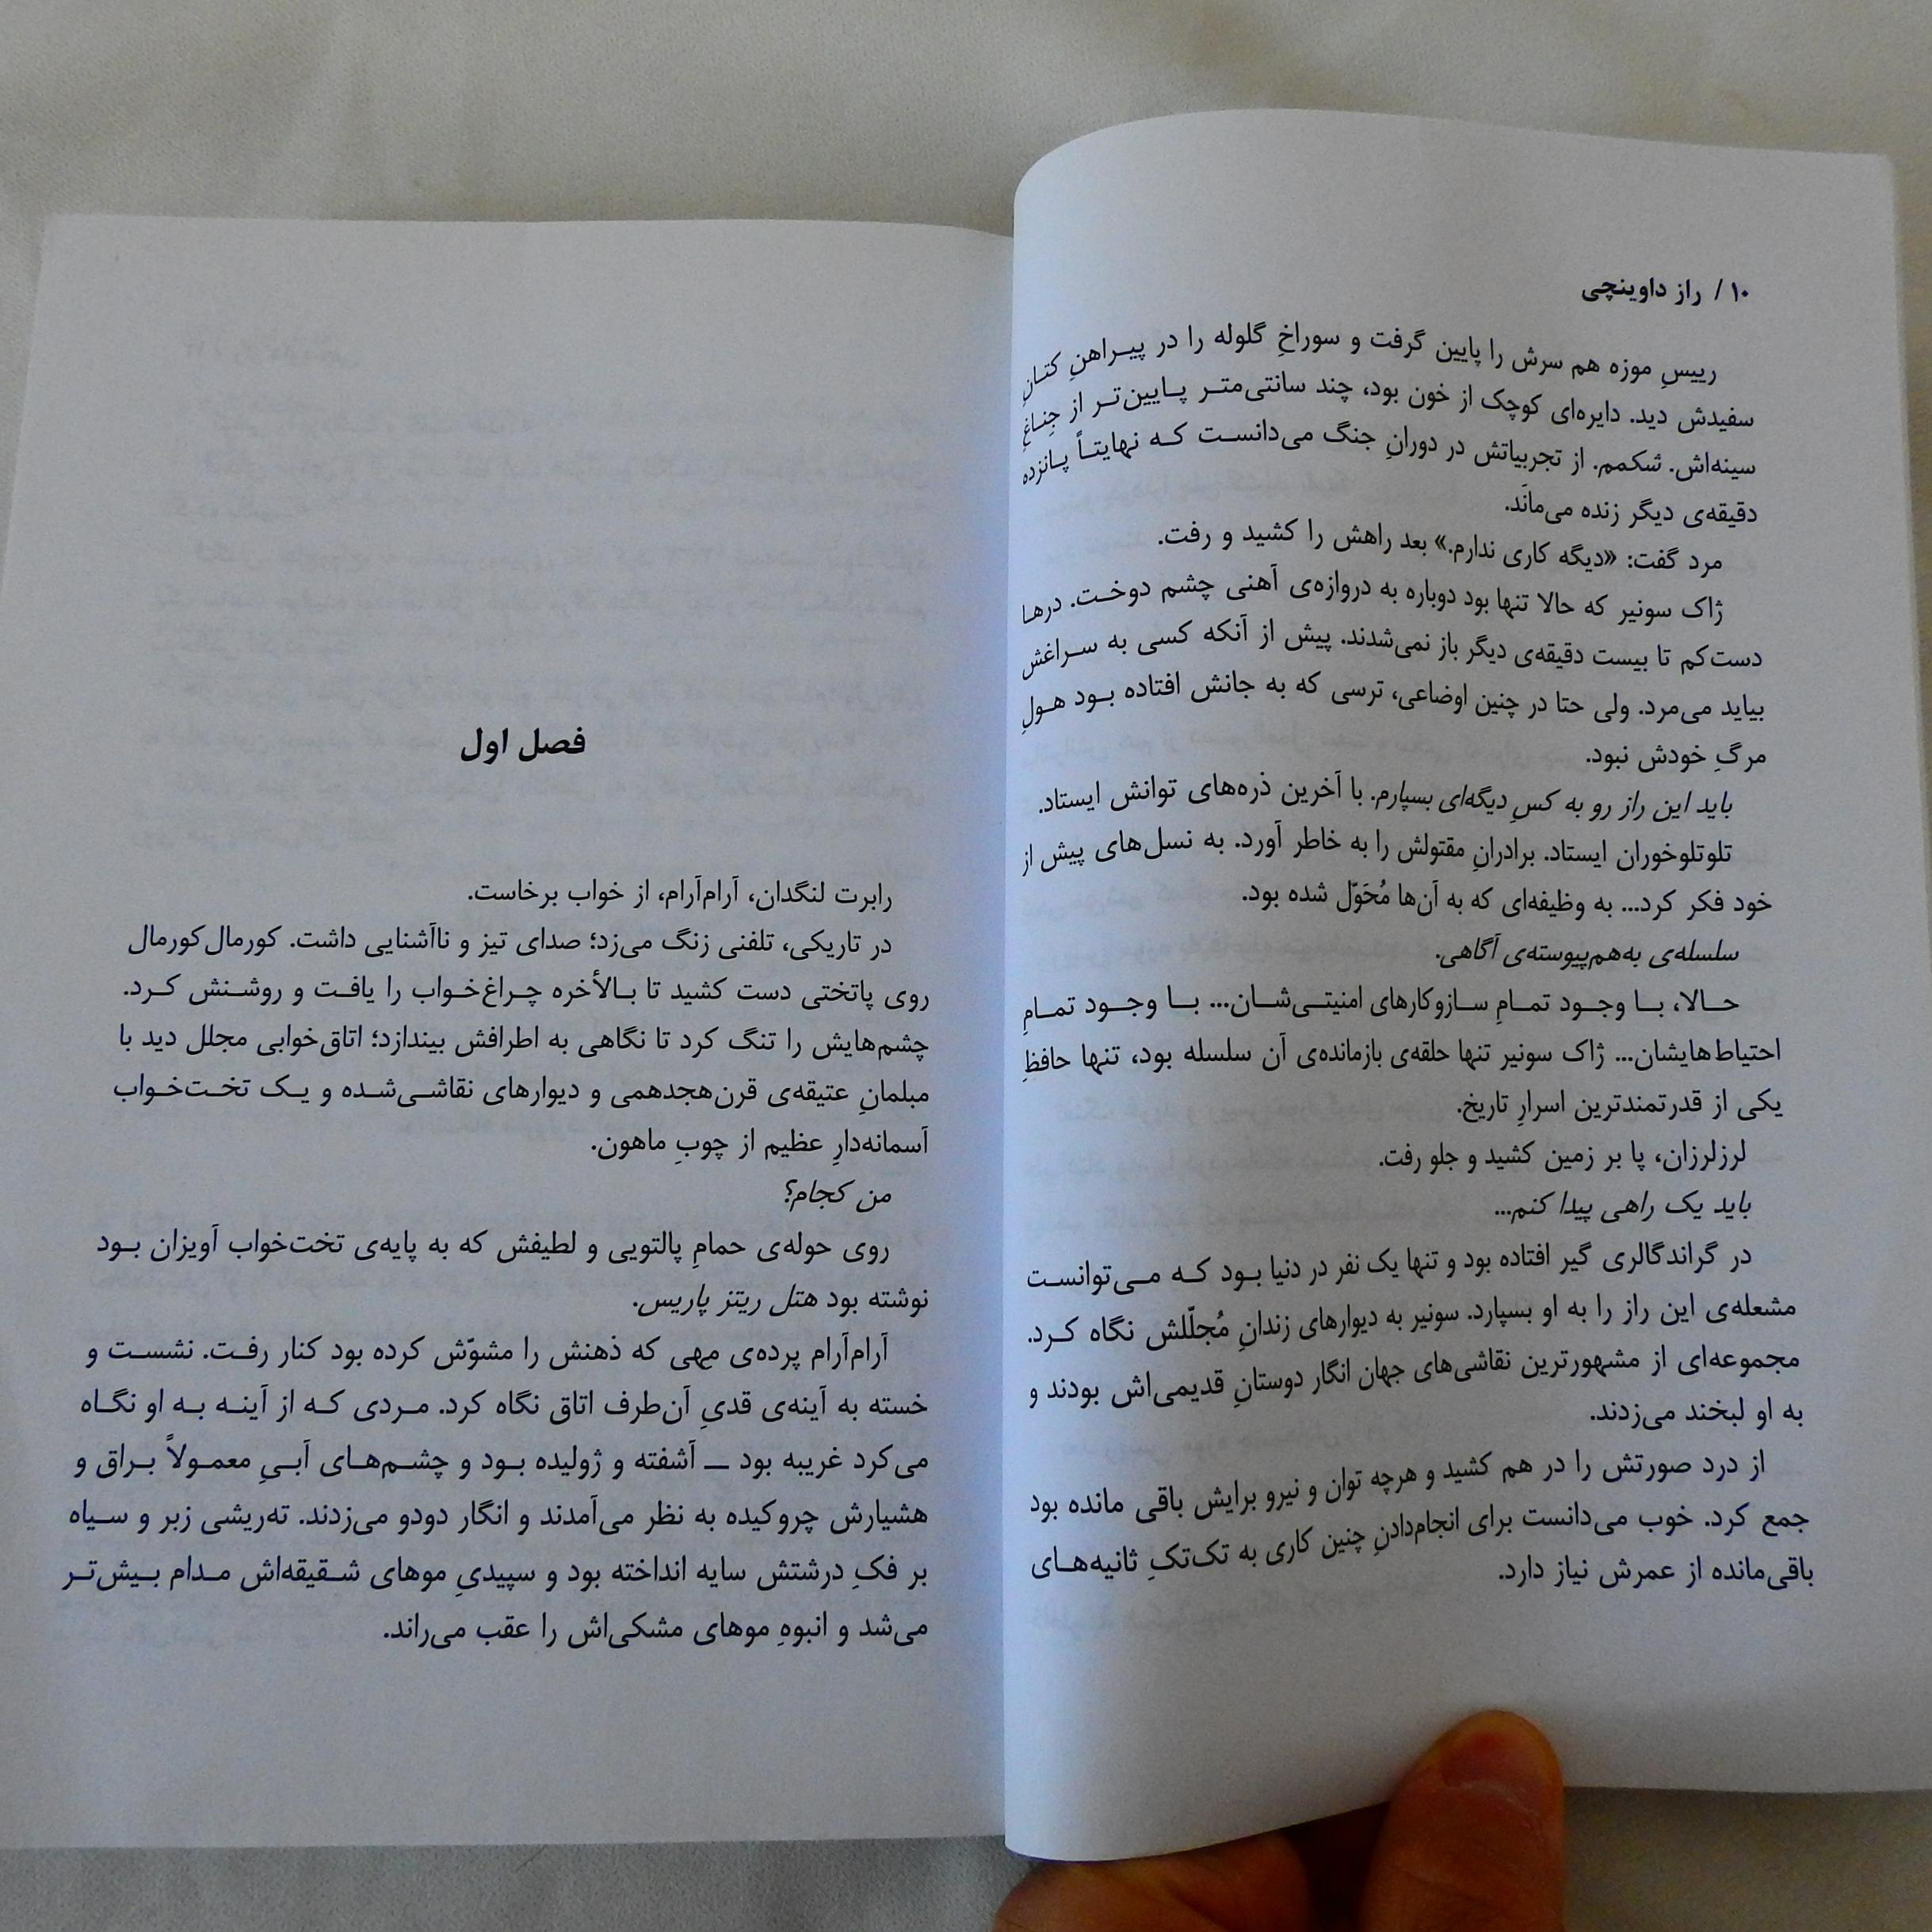 ۱۰ / راز داوینچی
رییسِ موزه هم سرش را پایین گرفت و سوراخِ گلوله را در پیراهنِ کتانِ
سفیدش دید. دایره‌ای کوچک از خون بود، چند سانتی‌متر پایین‌تر از جِناغِ
سینه‌اش. شکمم. از تجربیاتش در دورانِ جنگ می‌دانست که نهایتاً پانزده
دقیقه‌ی دیگر زنده می‌مانَد.
مرد گفت: «دیگه کاری ندارم.» بعد راهش را کشید و رفت.
ژاک سونیر که حالا تنها بود دوباره به دروازه‌ی آهنی چشم دوخت. درها
دست‌کم تا بیست دقیقه‌ی دیگر باز نمی‌شدند. پیش از آنکه کسی به سراغش
بیاید می‌مرد. ولی حتا در چنین اوضاعی، ترسی که به جانش افتاده بود هولِ
مرگِ خودش نبود.
باید این راز رو به کسِ دیگه‌ای بسپارم. با آخرین ذره‌های توانش ایستاد.
تلوتلوخوران ایستاد. برادرانِ مقتولش را به خاطر آورد. به نسل‌های پیش از
خود فکر کرد... به وظیفه‌ای که به آن‌ها مُحَوّل شده بود.
سلسله‌ی به‌هم‌پیوسته‌ی آگاهی.
حالا، با وجود تمامِ سازوکارهای امنیتی‌شان... با وجود تمامِ
احتیاط‌هایشان... ژاک سونیر تنها حلقه‌ی بازمانده‌ی آن سلسله بود، تنها حافظِ
یکی از قدرتمندترین اسرارِ تاریخ.
لرزلرزان، پا بر زمین کشید و جلو رفت.
باید یک راهی پیدا کنم...
در گراندگالری گیر افتاده بود و تنها یک نفر در دنیا بود که می‌توانست
مشعله‌ی این راز را به او بسپارد. سونیر به دیوارهای زندانِ مُجلّلش نگاه کرد.
مجموعه‌ای از مشهورترین نقاشی‌های جهان انگار دوستانِ قدیمی‌اش بودند و
به او لبخند می‌زدند.
از درد صورتش را در هم کشید و هرچه توان و نیرو برایش باقی مانده بود
جمع کرد. خوب می‌دانست برای انجام‌دادنِ چنین کاری به تک‌تکِ ثانیه‌های
باقی‌مانده از عمرش نیاز دارد.
فصل اول
رابرت لنگدان، آرام‌آرام، از خواب برخاست.
در تاریکی، تلفنی زنگ می‌زد؛ صدای تیز و ناآشنایی داشت. کورمال‌کورمال
روی پاتختی دست کشید تا بالأخره چراغ‌خواب را یافت و روشنش کرد.
چشم‌هایش را تنگ کرد تا نگاهی به اطرافش بیندازد؛ اتاق‌خوابی مجلل دید با
مبلمانِ عتیقه‌ی قرن‌هجدهمی و دیوارهای نقاشی‌شده و یک تخت‌خواب
آسمانه‌دارِ عظیم از چوبِ ماهون.
من کجام؟
روی حوله‌ی حمامِ پالتویی و لطیفش که به پایه‌ی تخت‌خواب آویزان بود
نوشته بود هتل ریتز پاریس.
آرام‌آرام پرده‌ی مِهی که ذهنش را مشوّش کرده بود کنار رفت. نشست و
خسته به آینه‌ی قدیِ آن‌طرف اتاق نگاه کرد. مردی که از آینه به او نگاه
می‌کرد غریبه بود ــ آشفته و ژولیده بود و چشم‌های آبیِ معمولاً براق و
هشیارش چروکیده به نظر می‌آمدند و انگار دودو می‌زدند. ته‌ریشی زبر و سیاه
بر فکِ درشتش سایه انداخته بود و سپیدیِ موهای شقیقه‌اش مدام بیش‌تر
می‌شد و انبوهِ موهای مشکی‌اش را عقب می‌راند.